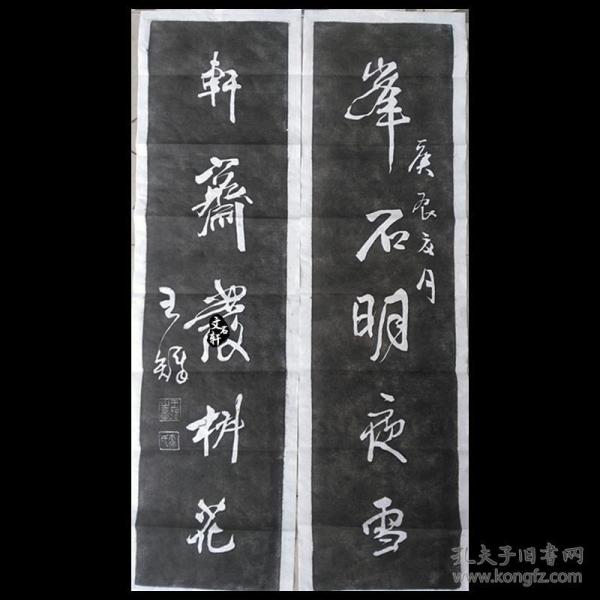 峯石明夜雪
庚辰夏月
軒齋發花
王鐸
文石軒
孔夫子旧书网
www.kongfz.com